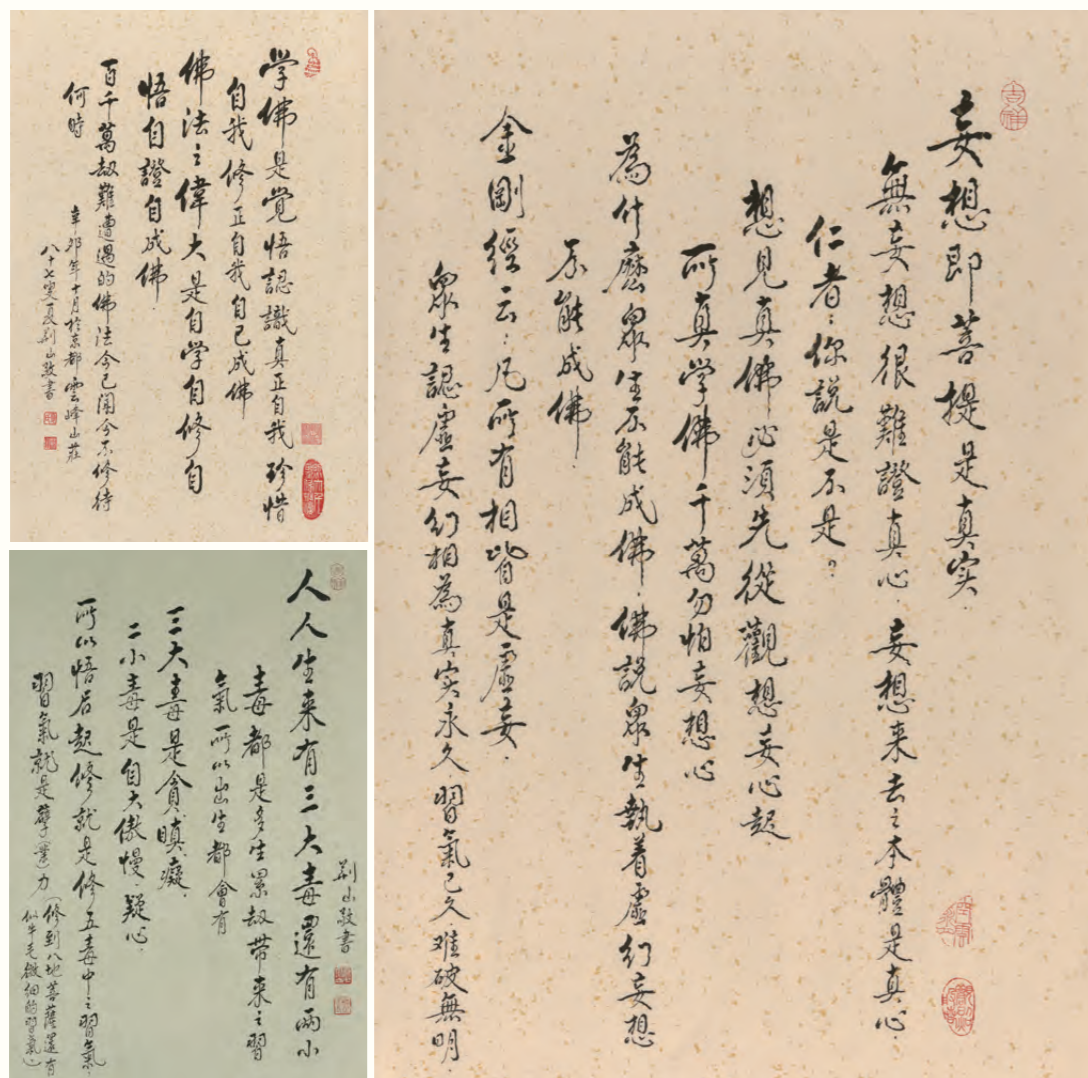 学佛是觉悟認識真正自我珍惜
自我修正自我自己成佛
佛法之偉大是自学自修自
悟自證自成佛
百千萬劫難遭遇的佛法今已闻今不修待
何時
辛卯年十月於京都雲峰山莊
八十七叟夏荆山敬書
人人生来有三大毒還有兩小
毒都是多生累劫带来之習
氣所以出生都會有
三大毒是貪瞋癡
二小毒是自大傲慢疑心
所以悟后起修就是修五毒中之習氣
習氣就是孽(業)力(修到八地菩薩還有
似牛毛微细的習氣)
荆山敬書
妄想即菩提是真实
無妄想很難證真心妄想来去之本體是真心
仁者你説是不是?
想見真佛必須先從觀想妄心起
所真学佛千萬勿怕妄想心
為什麽衆生不能成佛佛説衆生執着虚幻妄想
不能成佛
金剛經云凡所有相皆是虚妄
衆生認虚妄幻相為真实永久習氣已久难破無明
吉祥